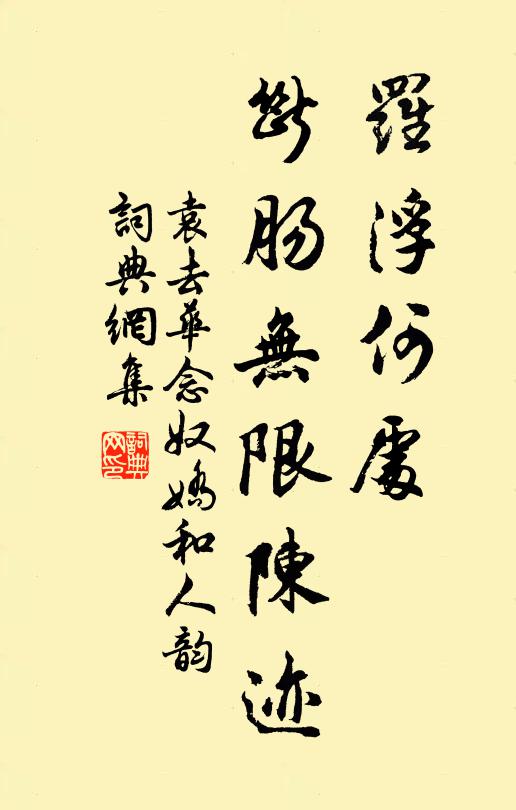 羅浮何處
斷腸無限陳迹
袁去華念奴嬌和人韵
詞典網集
詞典網印